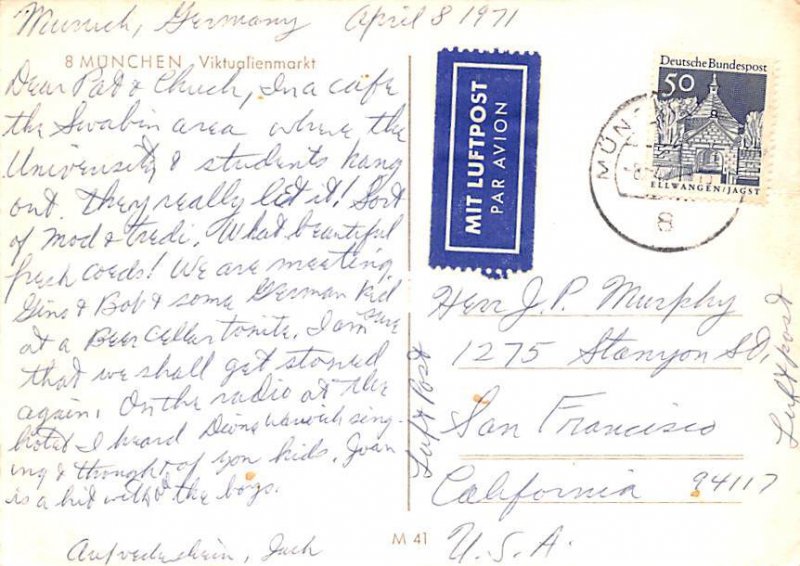 Munich, Germany April 8 1971
8 MÜNCHEN Viktualienmarkt
Dear Pat & Chuck, In a cafe
the Swabin area where the
University & students hang
out. They really let it! Sort
of Mod & Tredi. What beautiful
fresh coeds! We are meeting
Gine & Bob & some German kid
at a Beer Cellar tonite. I am sure
that we shall get stoned
again. On the radio at the
hotel I heard Dione Warwick sing-
ing & thought of you kids. Joan
is a hit with the boys.
Aufvedershein, Jack
MIT LUFTPOST
PAR AVION
Deutsche Bundespost
50
ELLWANGEN/JAGST
MÜN
8
Herr J. P. Murphy
1275 Stanyon St,
San Francisco
California 94117
U.S.A.
Luft Post
Luft post
M 41